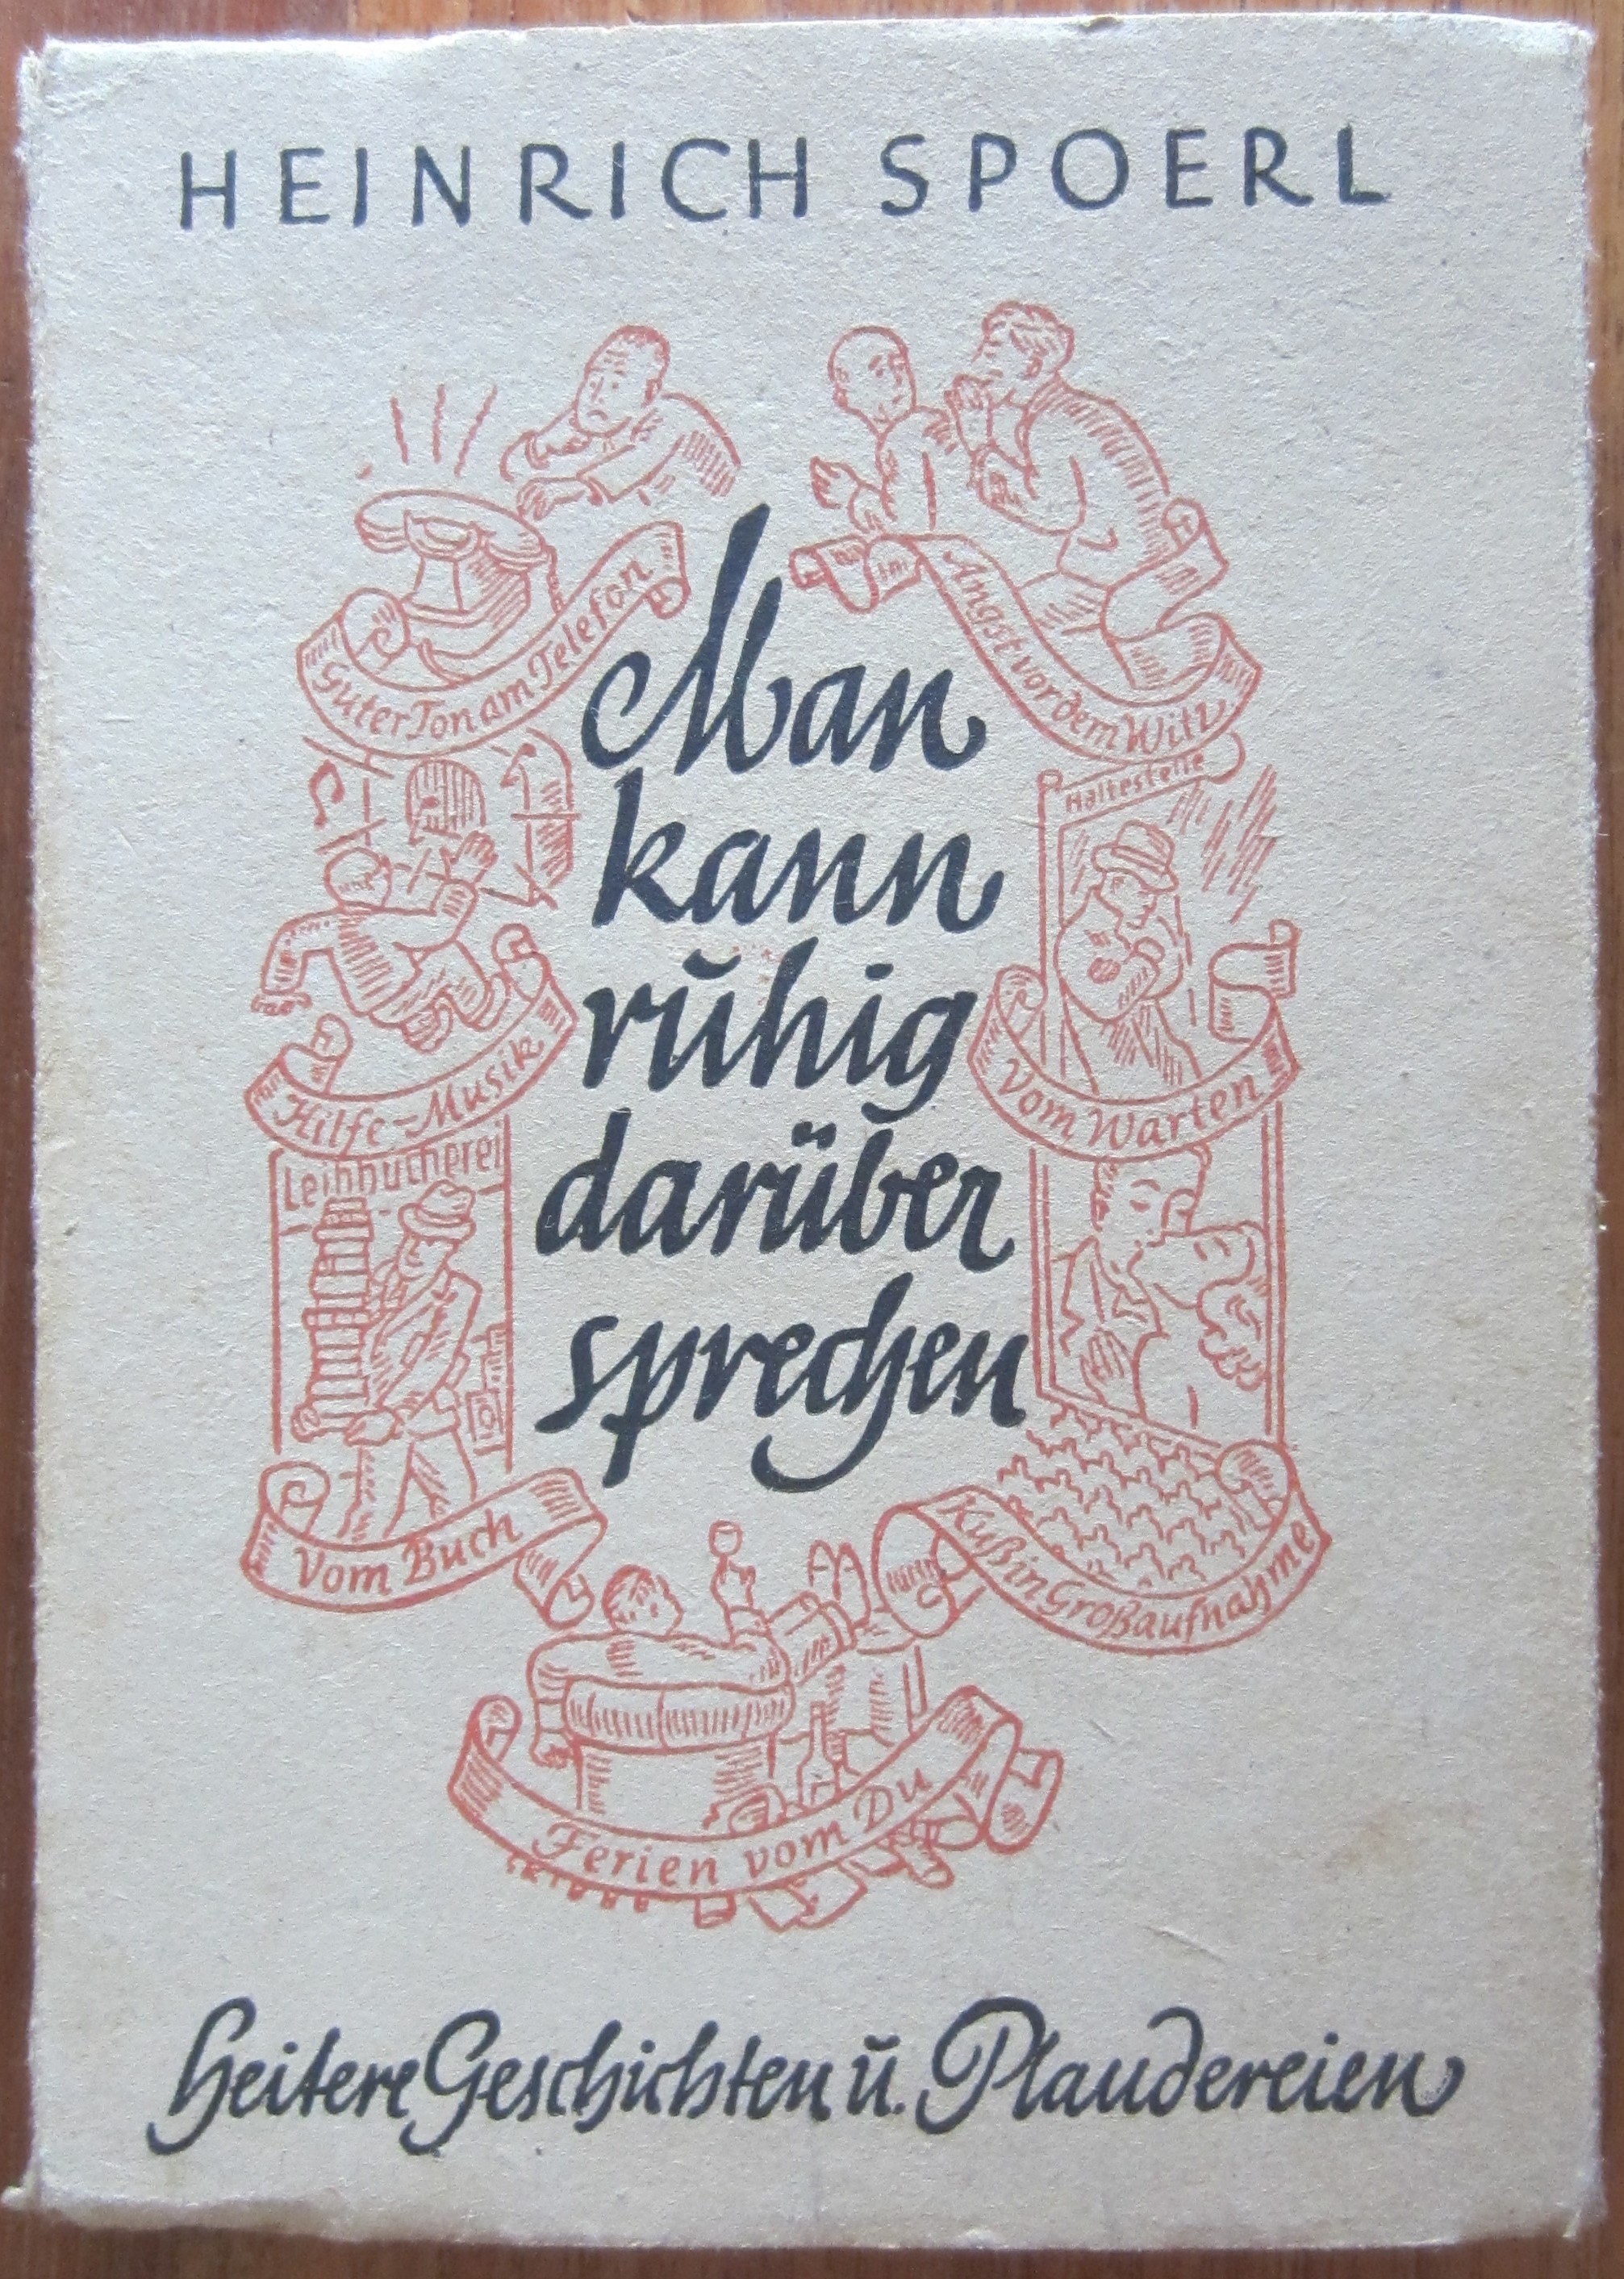 HEINRICH SPOERL
Guter Ton am Telefon
Angst vor dem Witz
Man
kann
ruhig
darüber
sprechen
Haltestelle
Hilfe-Musik
Vom Warten
Leihbücherei
Vom Buch
Kuß in Großaufnahme
Ferien vom Du
Heitere Geschichten u. Plaudereien